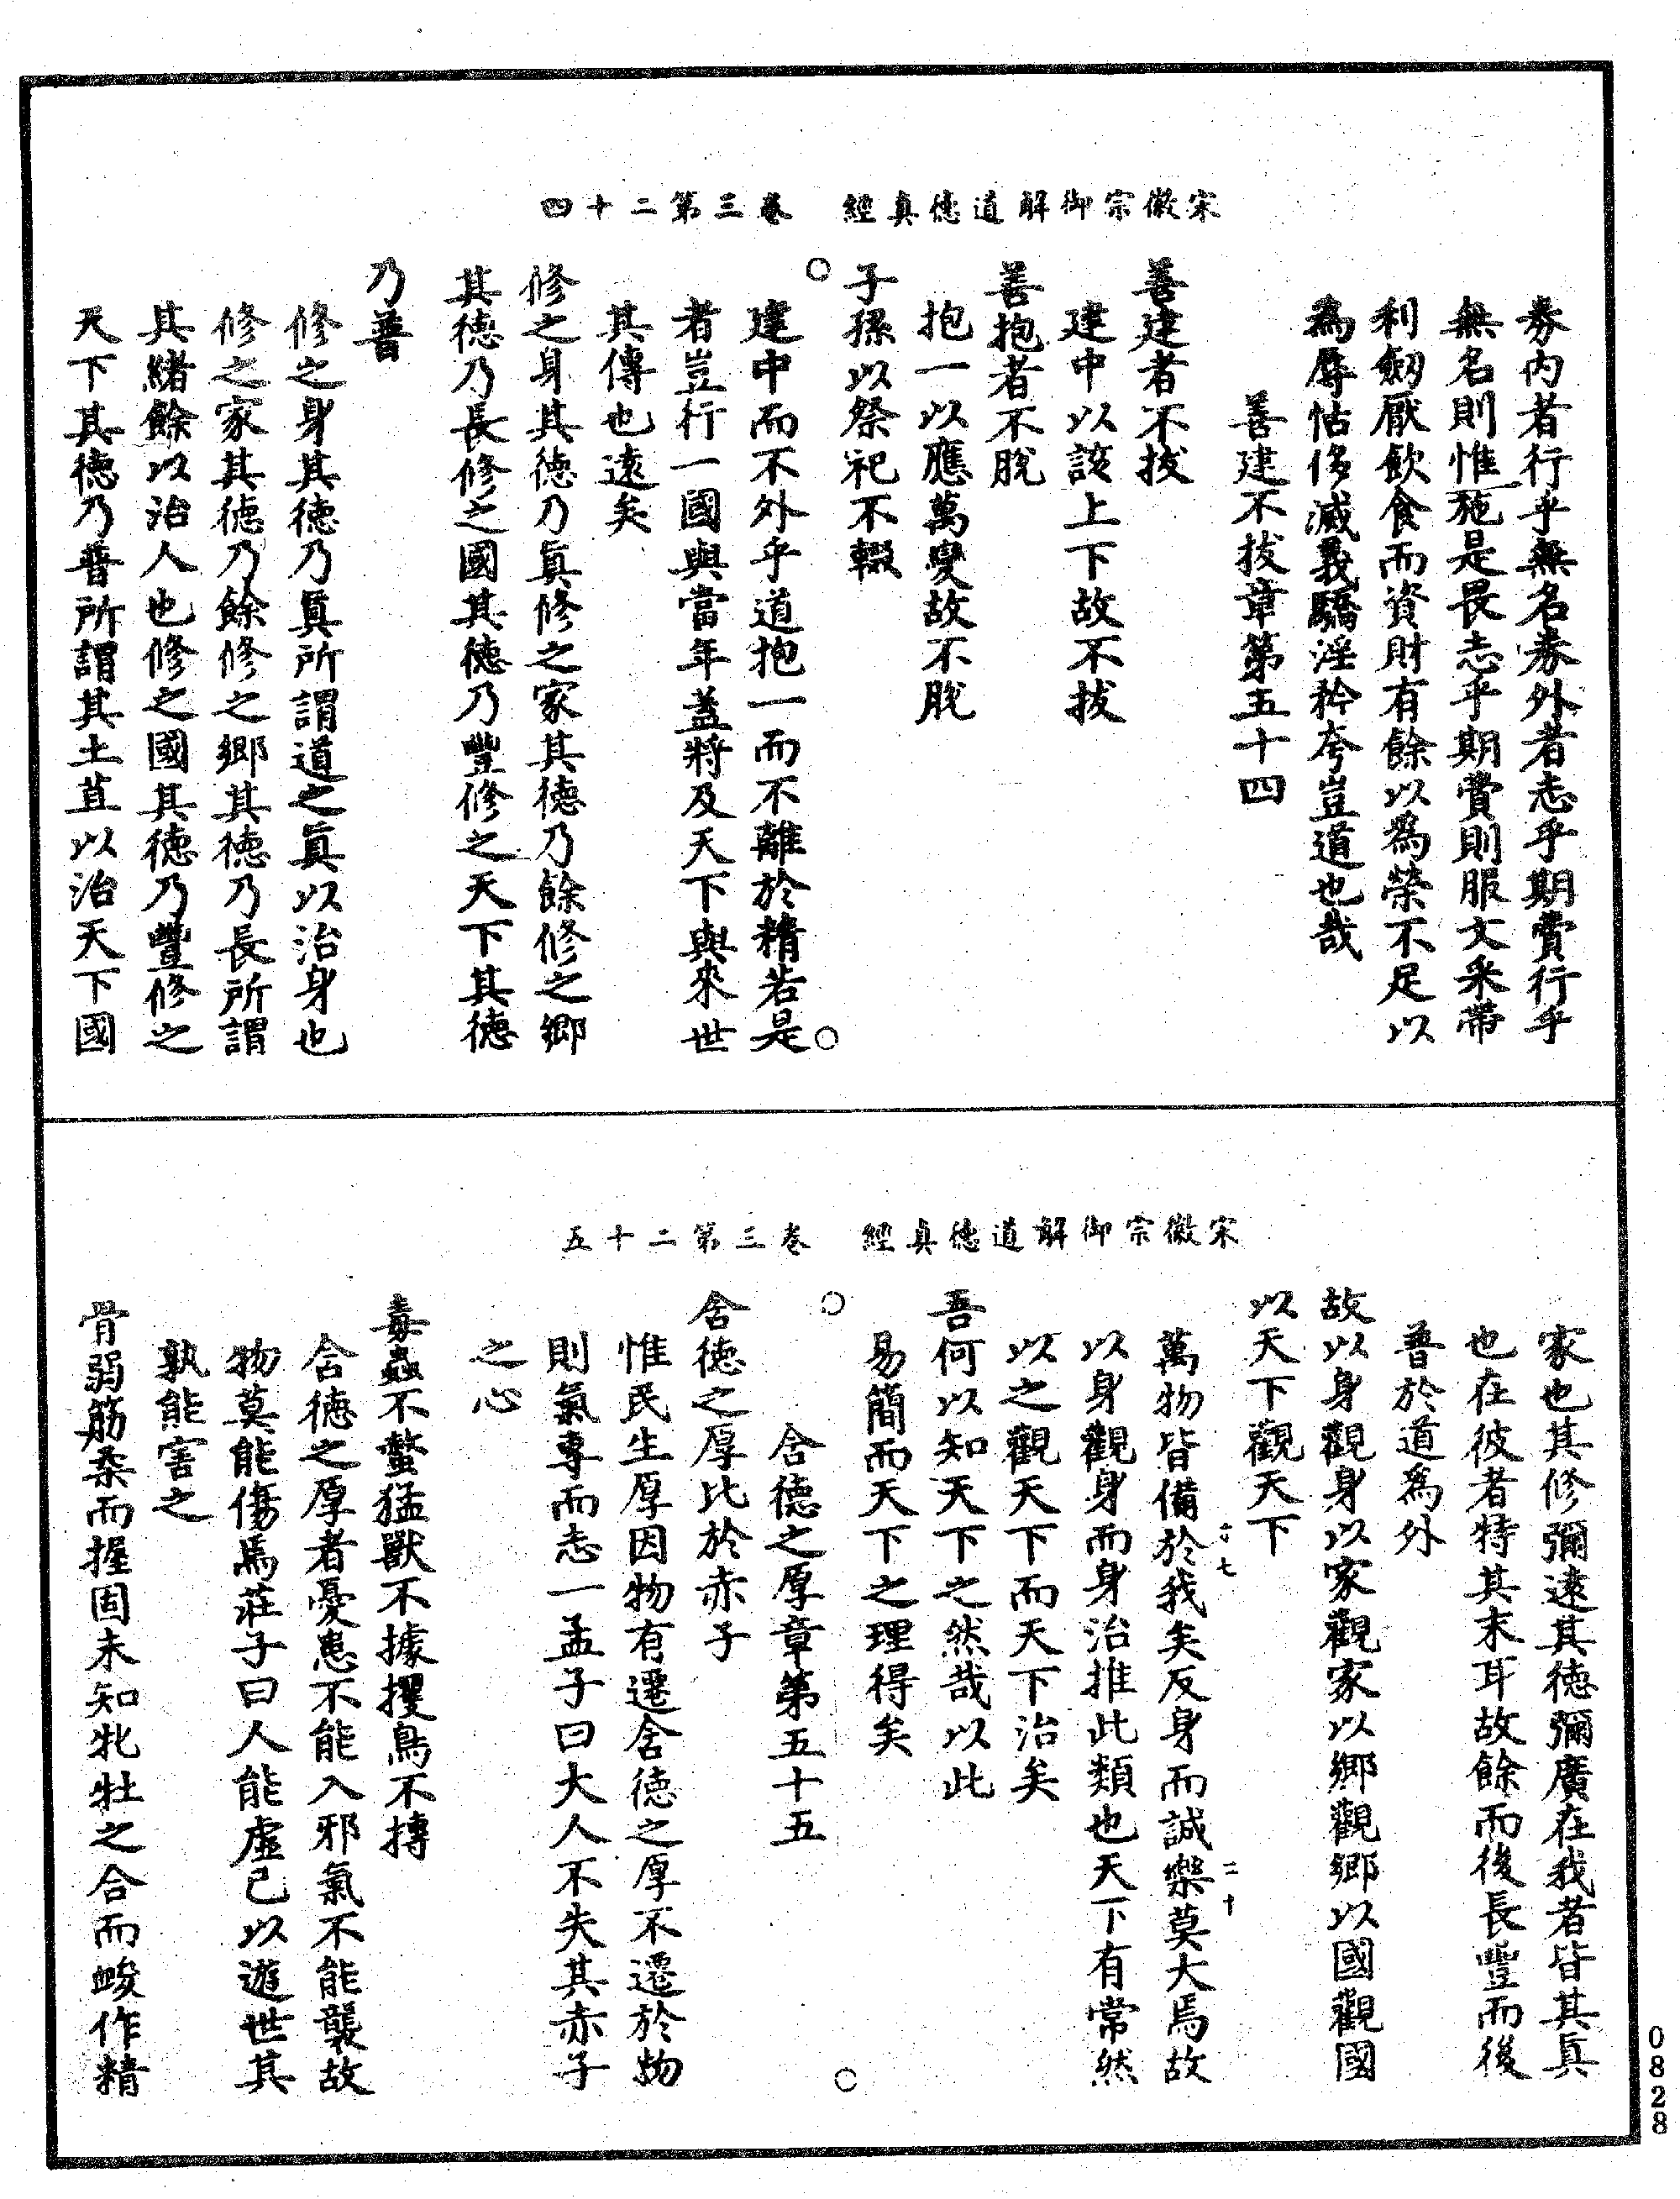 宋徽宗御解道德真經　卷三第二十四
券內者行乎無名券外者志乎期費行乎
無名則惟施是畏志乎期費則服文采帶
利劒厭飲食而資財有餘以爲榮不足以
爲辱怙侈滅義驕淫矜夸豈道也哉
善建不拔章第五十四
善建者不拔
建中以該上下故不拔
善抱者不脫
抱一以應萬變故不脫
子孫以祭祀不輟
建中而不外乎道抱一而不離於精若是
者豈行一國與當年蓋將及天下與來世
其傳也遠矣
修之身其德乃眞修之家其德乃餘修之鄉
其德乃長修之國其德乃豐修之天下其德
乃普
修之身其德乃眞所謂道之眞以治身也
修之家其德乃餘修之鄉其德乃長所謂
其緒餘以治人也修之國其德乃豐修之
天下其德乃普所謂其土苴以治天下國
宋徽宗御解道德真經　卷三第二十五
家也其修彌遠其德彌廣在我者皆其眞
也在彼者特其末耳故餘而後長豐而後
普於道爲外
故以身觀身以家觀家以鄉觀鄉以國觀國
以天下觀天下
萬物皆備於我矣反身而誠樂莫大焉故
以身觀身而身治推此類也天下有常然
以之觀天下而天下治矣
吾何以知天下之然哉以此
易簡而天下之理得矣
含德之厚章第五十五
含德之厚比於赤子
惟民生厚因物有遷含德之厚不遷於物
則氣專而志一孟子曰大人不失其赤子
之心
毒蟲不螫猛獸不據攫鳥不搏
含德之厚者憂患不能入邪氣不能襲故
物莫能傷焉莊子曰人能虛己以遊世其
孰能害之
骨弱筋柔而握固未知牝牡之合而峻作精
0828